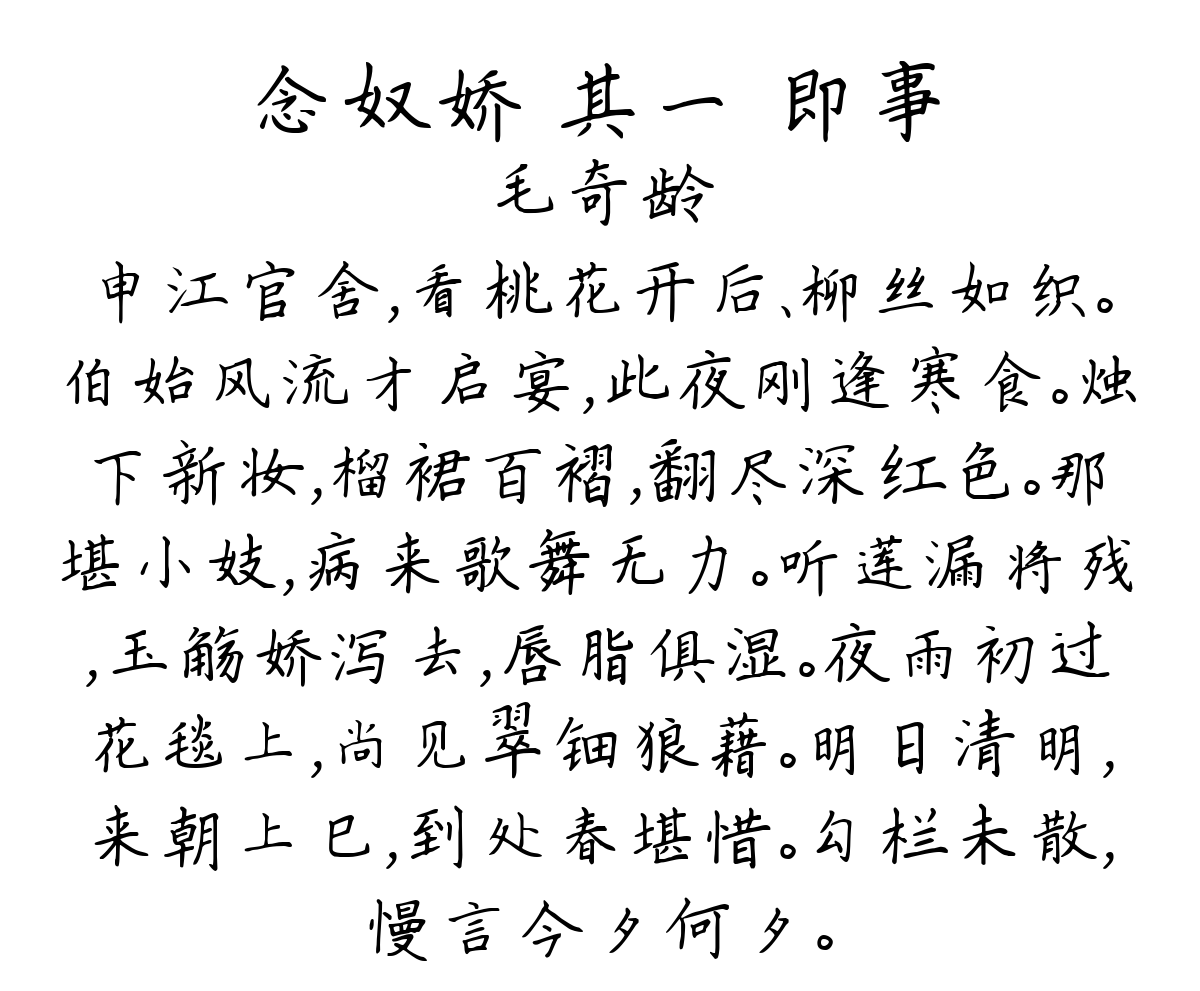 念奴娇 其一 即事
毛奇龄
申江官舍,看桃花开后、柳丝如织。
伯始风流才启宴,此夜刚逢寒食。烛
下新妆,榴裙百褶,翻尽深红色。那
堪小妓,病来歌舞无力。听莲漏将残
,玉觞娇泻去,唇脂俱湿。夜雨初过
花毯上,尚见翠钿狼藉。明日清明,
来朝上巳,到处春堪惜。勾栏未散,
慢言今夕何夕。